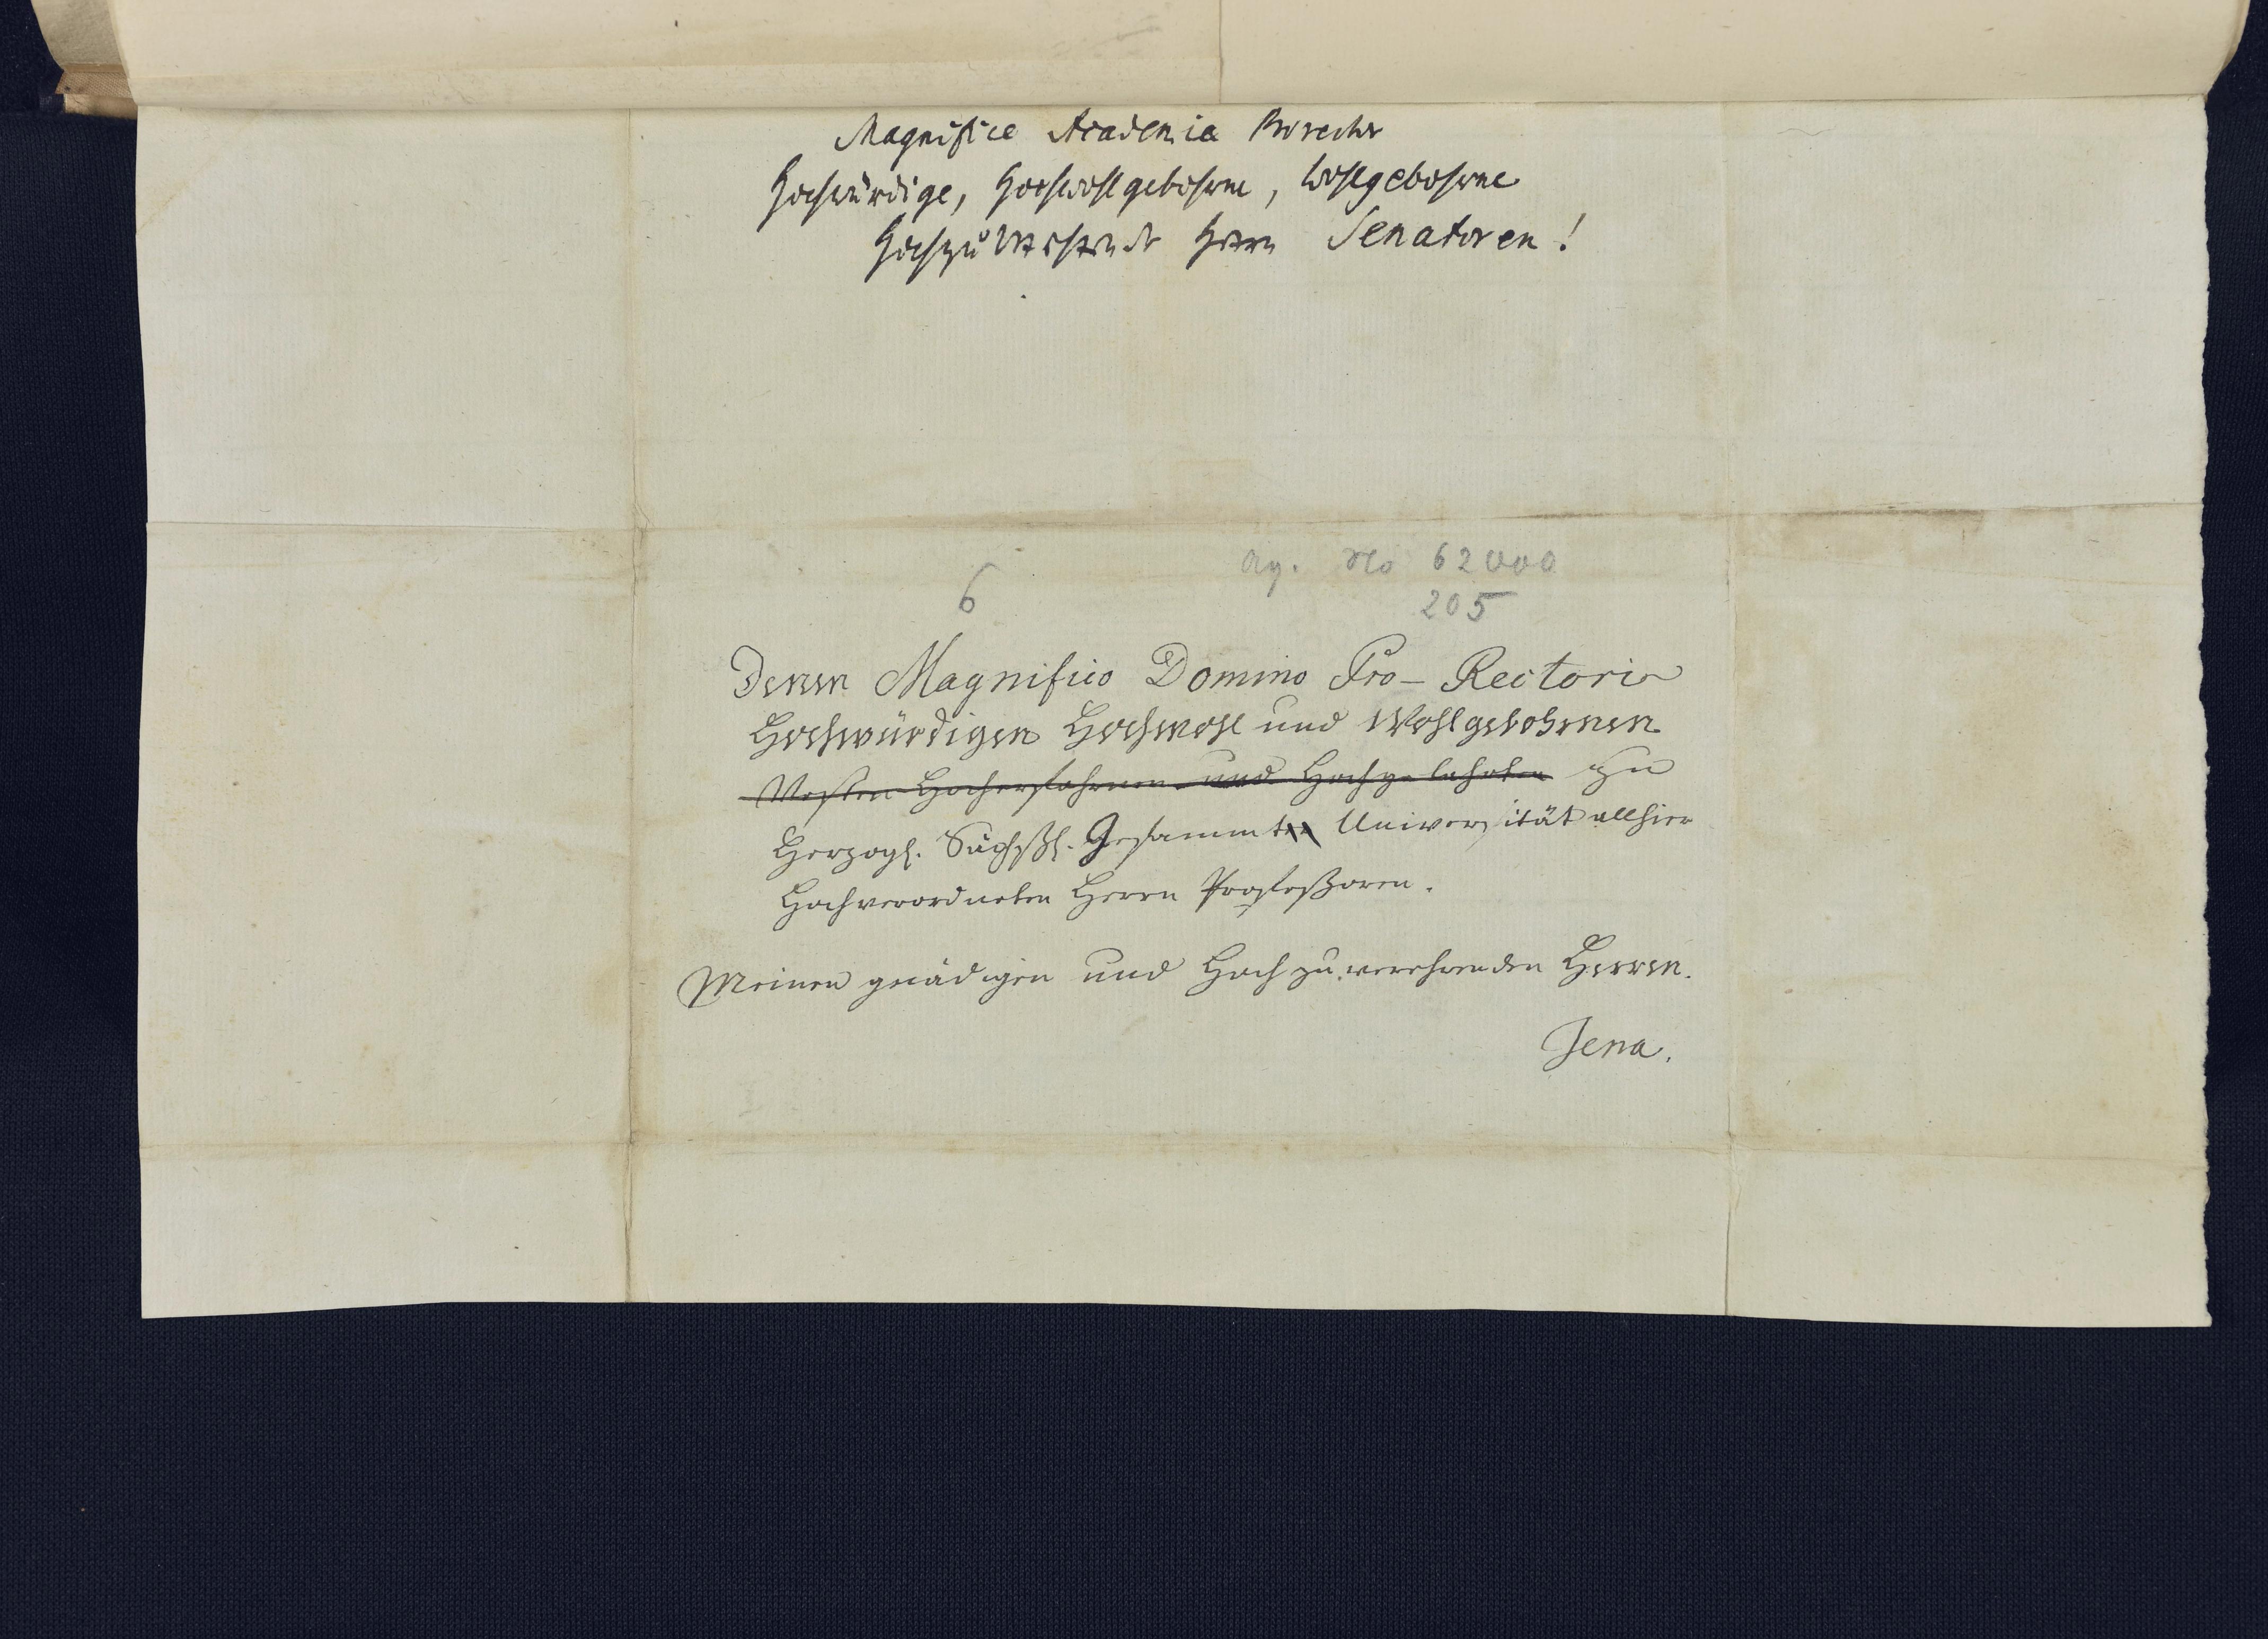 Magnifice Academiae Prorector
Hochwürdige, Hochwohlgebohrne, Wohlgebohrne
Hochzuverehrende Herrn Senatoren!
No 62000
6
205
Denen Magnifico Domino Pro-Rectori
Hochwürdigen Hochwohl und Wohlgebohrnen
Vesten Hocherfahrnen und Hochgelahrten zu
Herzogl. Sächßl. Gesammten Universität allhier
Hochverordneten Herrn Profeßoren.
Meinen gnädigen und Hochzuverehrenden Herren.
Jena.